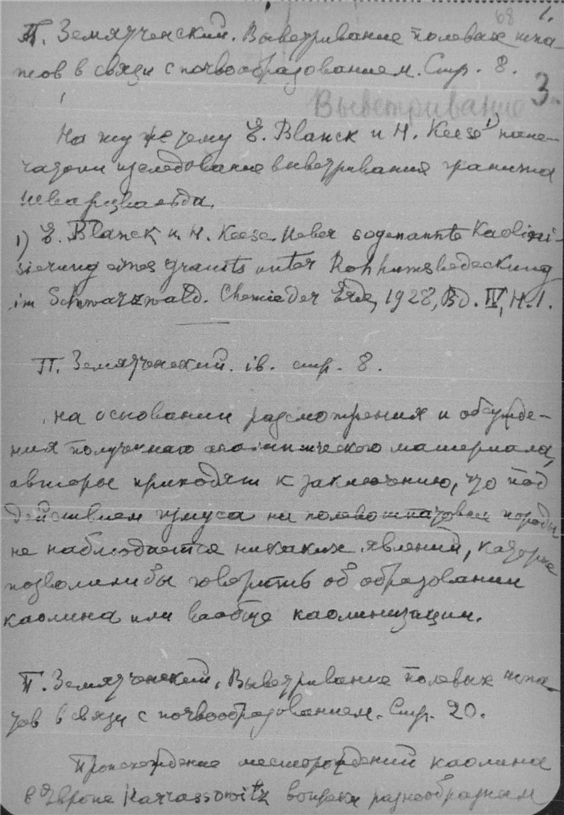 68 1.
П. Земятченский. Выветривание полевых шпа-
тов в связи с почвообразованием. Стр. 8.
3
Выветривание
На ту же тему E. Blanck и H. Keese 1) напе-
чатали исследование выветривания гранита
Шварцвальда.
1) E. Blanck u. H. Keese. Ueber sogenannte Kaolini-
sierung eines Granits unter Rohhumusbedeckung
im Schwarzwald. Chemie der Erde, 1928, Bd. IV, H. 1.
П. Земятченский. ib. стр. 8.
На основании рассмотрения и обсужде-
ния полученного аналитического материала,
авторы приходят к заключению, что под
действием гумуса на полевошпатовые породы
не наблюдается никаких явлений, которые
позволили бы говорить об образовании
каолина или вообще каолинизации.
П. Земятченский, Выветривание полевых шпа-
тов в связи с почвообразованием. Стр. 20.
Происхождение месторождений каолина
в Европе Harrassowitz вопреки разнообразным